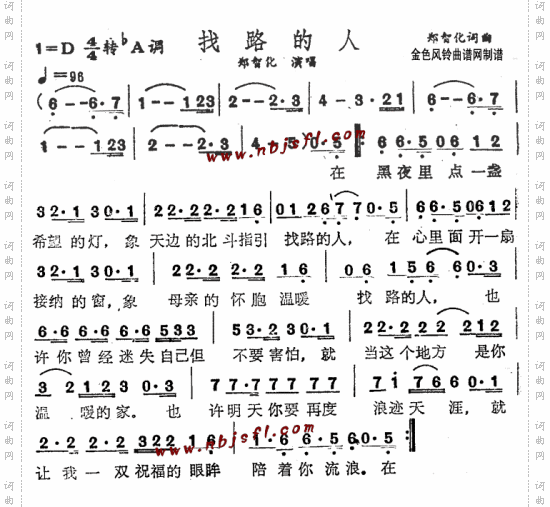 找路的人
1=D 4/4 转♭A调
郑智化词曲
郑智化 演唱
金色风铃曲谱网制谱
♩=96
(6 - - 6·7 | 1 - - 123 | 2 - - 2·3 | 4 - 3 · 21 | 6 - - 6·7 |
1 - - 123 | 2 - - 2·3 | 4 - 5 0·5 ‖: 6 6·5 06 12
www.nbjsfl.com
在 黑夜里 点一盏
32·1 30·1 | 22·22·216 | 0126 77 0·5 | 66·50612
希望的灯，象 天边的北斗指引 找路的人， 在 心里面开一扇
32·1 30·1 | 22·2 2·2 16 | 06 156 60·3
接纳的窗，象 母亲的怀胞温暖 找 路的人， 也
6·6 6·6 6·6 533 | 53·2 30·1 | 22·2 22 212
许你曾经迷失自己但 不要害怕，就 当这个地方 是你
3 2 123 0·3 | 77·77 77 7 | 71 766 0·1
温 暖的家。也 许明天你要再度 浪迹天 涯，就
2·2 2·2 322 16 | 1·6 6·56·60·5 :‖
www.nbjsfl.com
让我一 双祝福的眼眸 陪着你流浪。在
词曲网